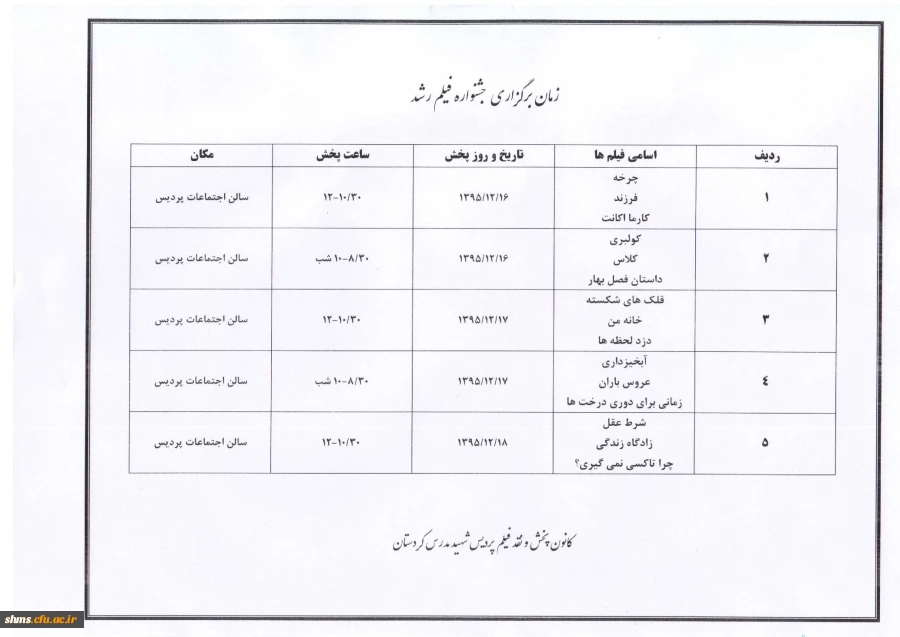 زمان برگزاری جشنواره فیلم رشد
ردیف اسامی فیلم ها تاریخ و روز پخش ساعت پخش مکان
۱ چرخه فرزند کارما اکانت ۱۳۹۵/۱۲/۱۶ ۱۲-۱۰/۳۰ سالن اجتماعات پردیس
۲ کولبری کلاس داستان فصل بهار ۱۳۹۵/۱۲/۱۶ ۸/۳۰-۱۰ شب سالن اجتماعات پردیس
۳ قلک های شکسته خانه من دزد لحظه ها ۱۳۹۵/۱۲/۱۷ ۱۲-۱۰/۳۰ سالن اجتماعات پردیس
۴ آبخیزداری عروس باران زمانی برای دوری درخت ها ۱۳۹۵/۱۲/۱۷ ۸/۳۰-۱۰ شب سالن اجتماعات پردیس
۵ شرط عقل زادگاه زندگی چرا تاکسی نمی گیری؟ ۱۳۹۵/۱۲/۱۸ ۱۲-۱۰/۳۰ سالن اجتماعات پردیس
کانون پخش و نقد فیلم پردیس شهید مدرس کردستان
shms.cfu.ac.ir